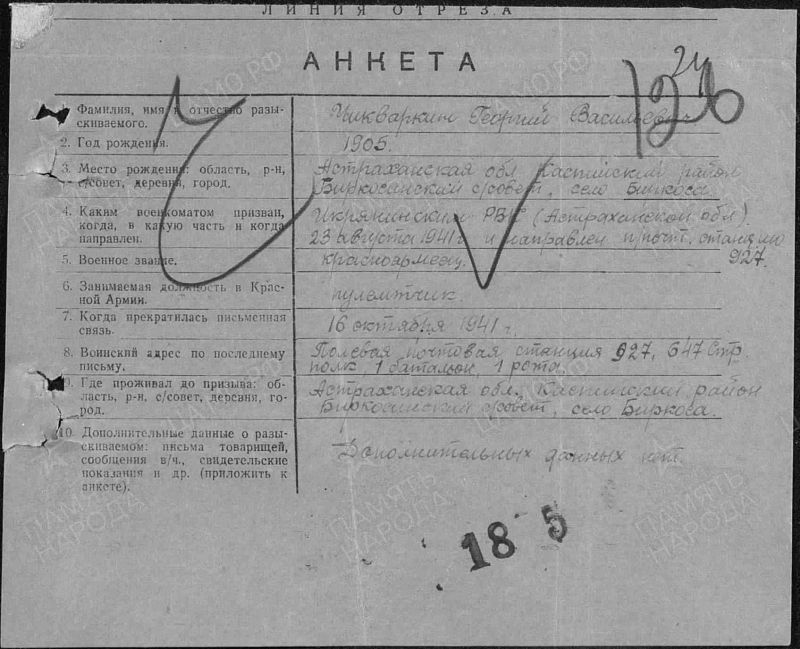 ЛИНИЯ ОТРЕЗА
АНКЕТА
24
126
1. Фамилия, имя и отчество разыскиваемого.
Чикваркин Георгий Васильевич
2. Год рождения.
1905.
3. Место рождения: область, р-н, с/совет, деревня, город.
Астраханская обл Каспийский район
Биркосинский с/совет, село Биркоса
4. Каким военкоматом призван, когда, в какую часть и когда направлен.
Икрянинским РВК (Астраханской обл).
23 августа 1941 г. и направлен п/почт. станцию
927.
5. Военное звание.
красноармеец.
6. Занимаемая должность в Красной Армии.
пулемтчик.
7. Когда прекратилась письменная связь.
16 октября 1941 г.
8. Воинский адрес по последнему письму.
Полевая почтовая станция 927, 647 Стр.
полк, 1 баталион, 1 рота.
9. Где проживал до призыва: область, р-н, с/совет, деревня, город.
Астраханская обл, Каспийский район
Биркосинский с/совет, село Биркоса.
10. Дополнительные данные о разыскиваемом: письма товарищей, сообщения в/ч., свидетельские показания и др. (приложить к анкете).
Дополнительных данных нет.
18 5
ПАМЯТЬ НАРОДА
ПАМЯТЬ НАРОДА
ПАМЯТЬ НАРОДА